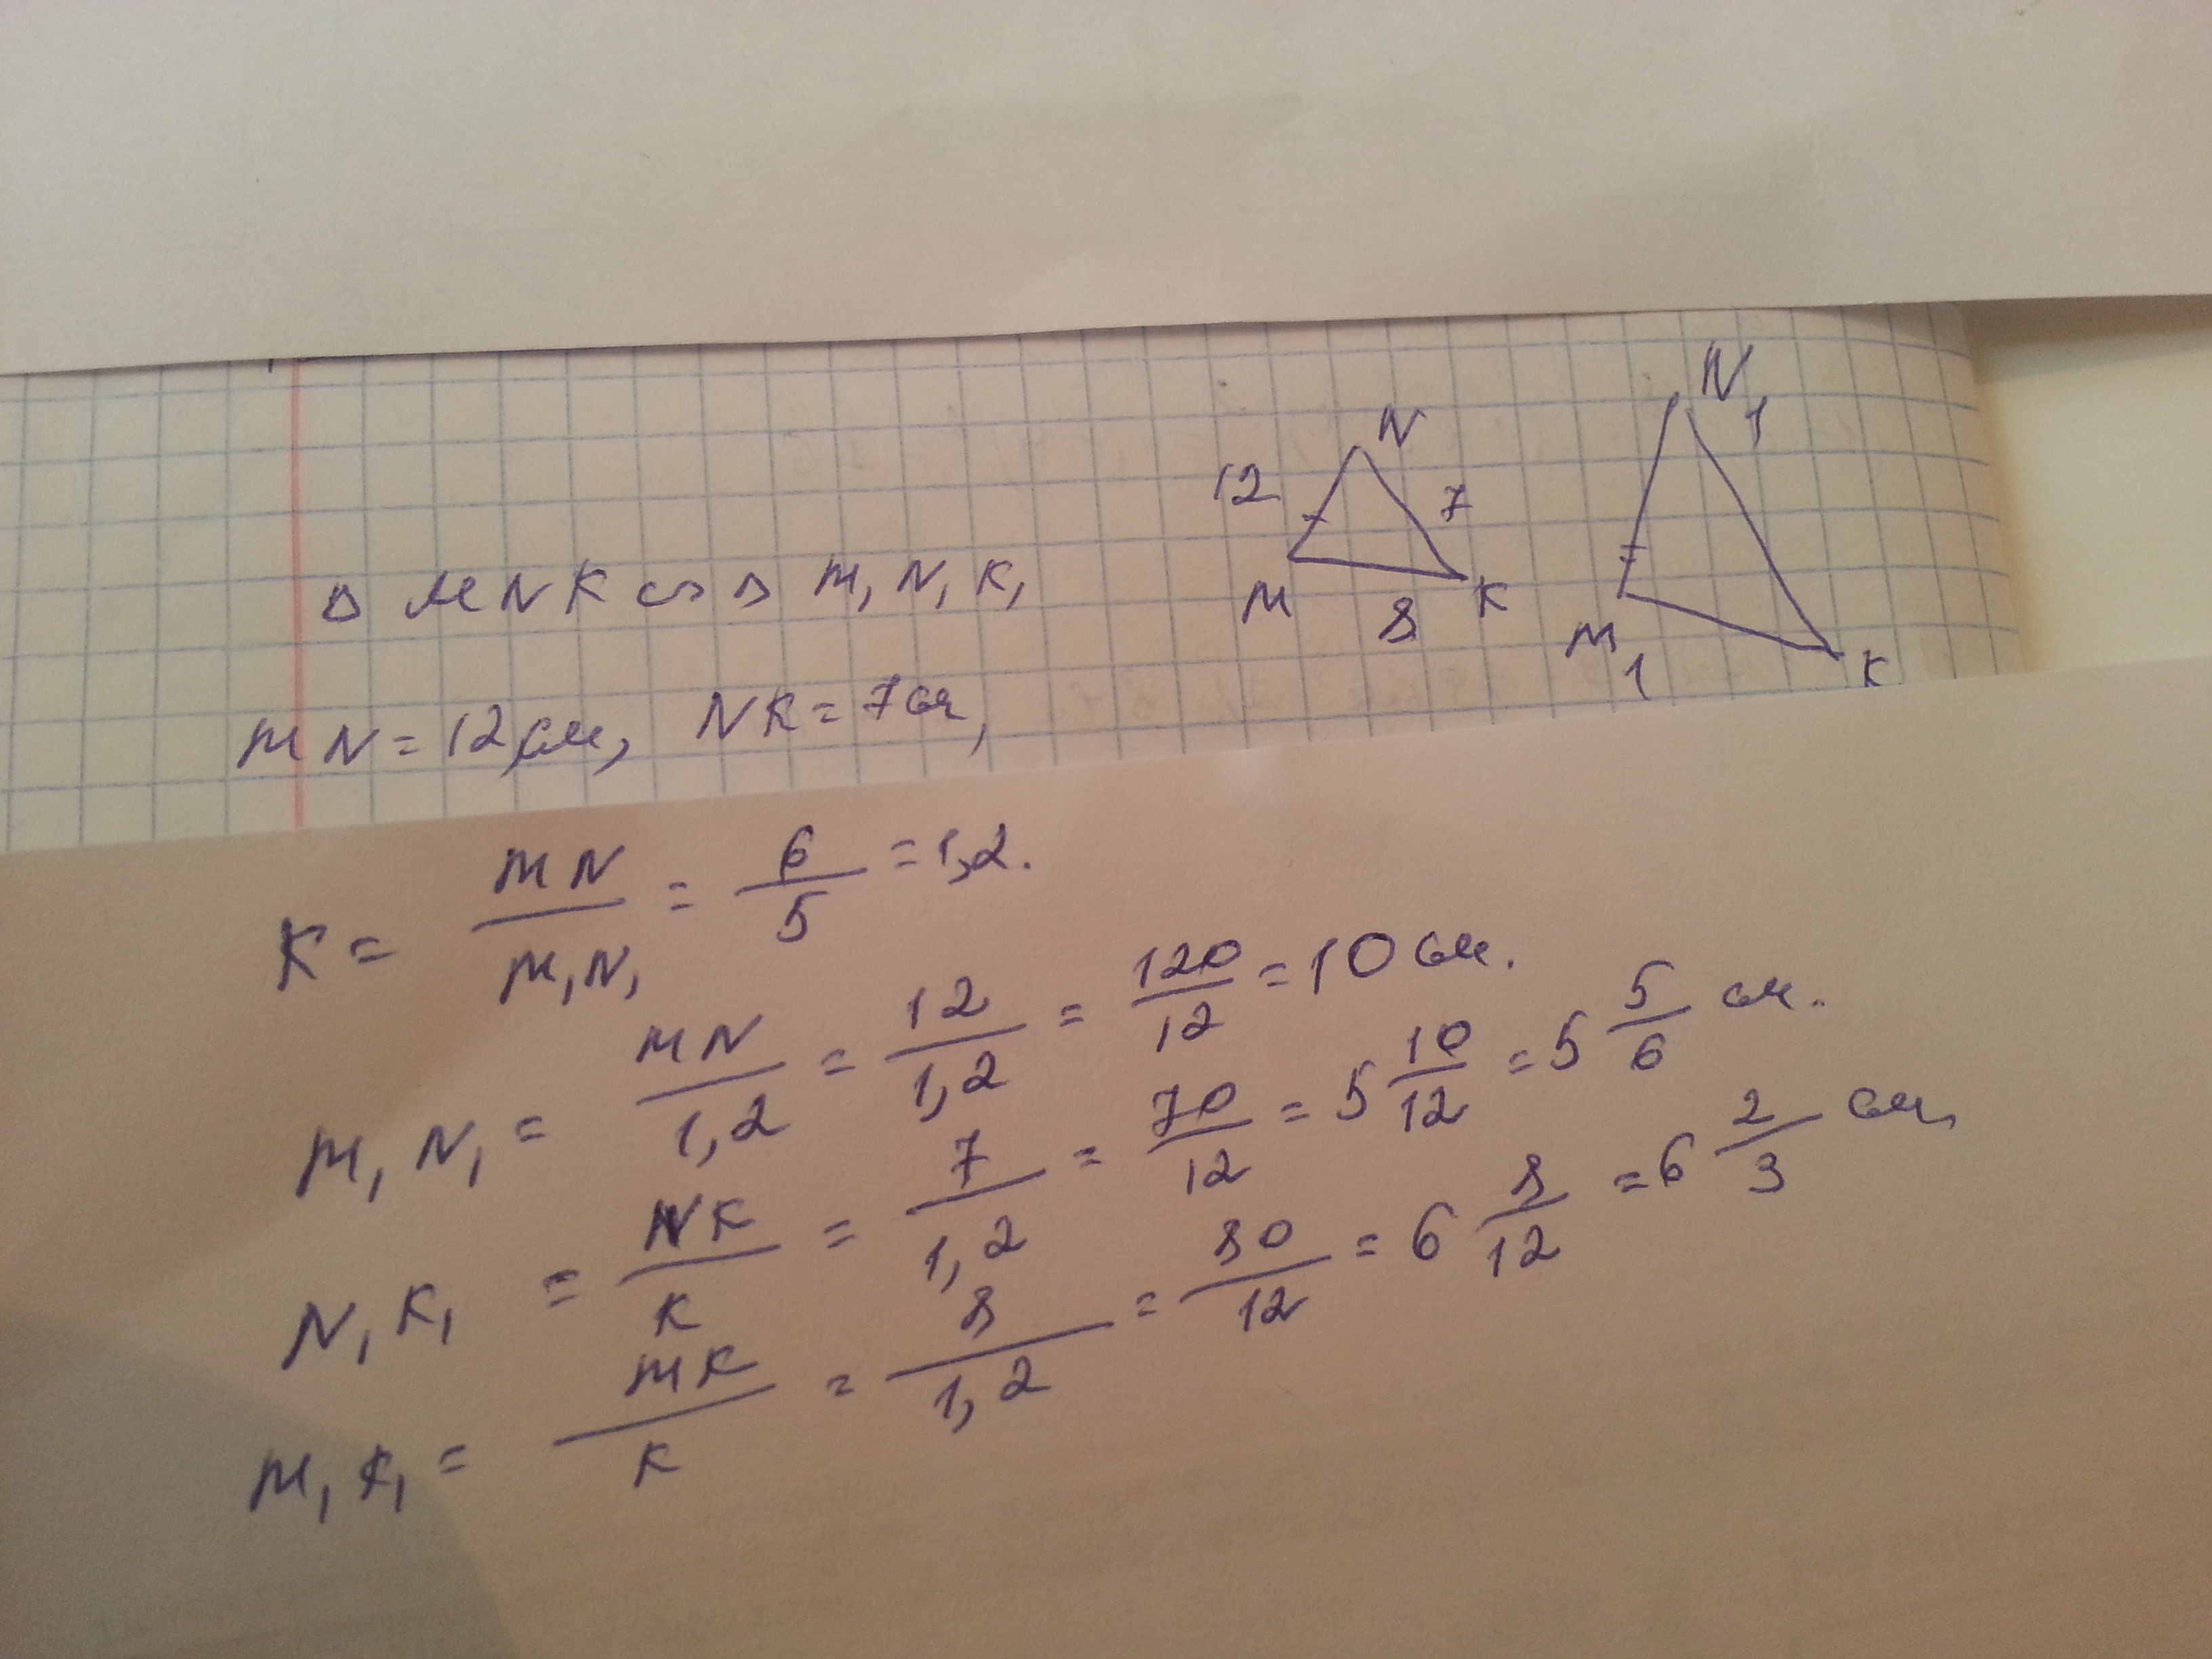 N N₁
12 7
M 8 K M₁ K
Δ MNK ∽ Δ M₁N₁K₁
MN = 12 см, NK = 7 см,
K = MN/M₁N₁ = 6/5 = 1,2.
M₁N₁ = MN/1,2 = 12/1,2 = 120/12 = 10 см.
N₁K₁ = NK/K = 7/1,2 = 70/12 = 5 10/12 = 5 5/6 см.
M₁K₁ = MK/K = 8/1,2 = 80/12 = 6 8/12 = 6 2/3 см,